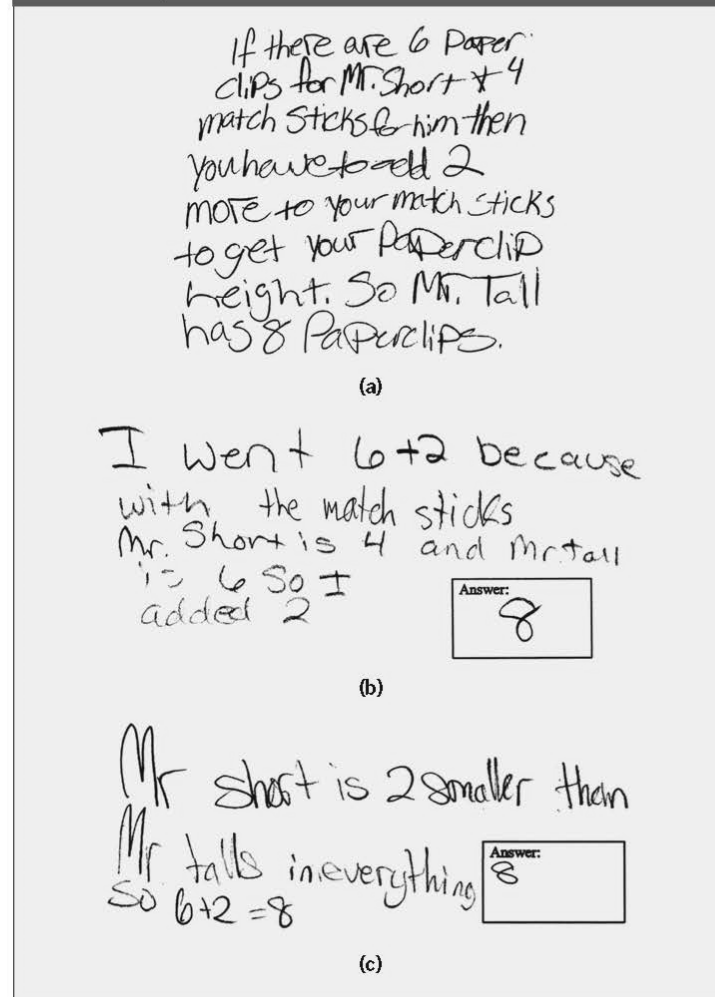 If there are 6 Paper
clips for Mr. Short + 4
match Sticks for him then
You have to add 2
more to your match sticks
to get your Paperclip
height. So Mr. Tall
has 8 Paperclips.
(a)
I went 6+2 because
with the match sticks
Mr. Short is 4 and Mr tall
is 6 So I
added 2
Answer:
8
(b)
Mr short is 2 smaller than
Mr talls in everything
So 6+2=8
Answer:
8
(c)